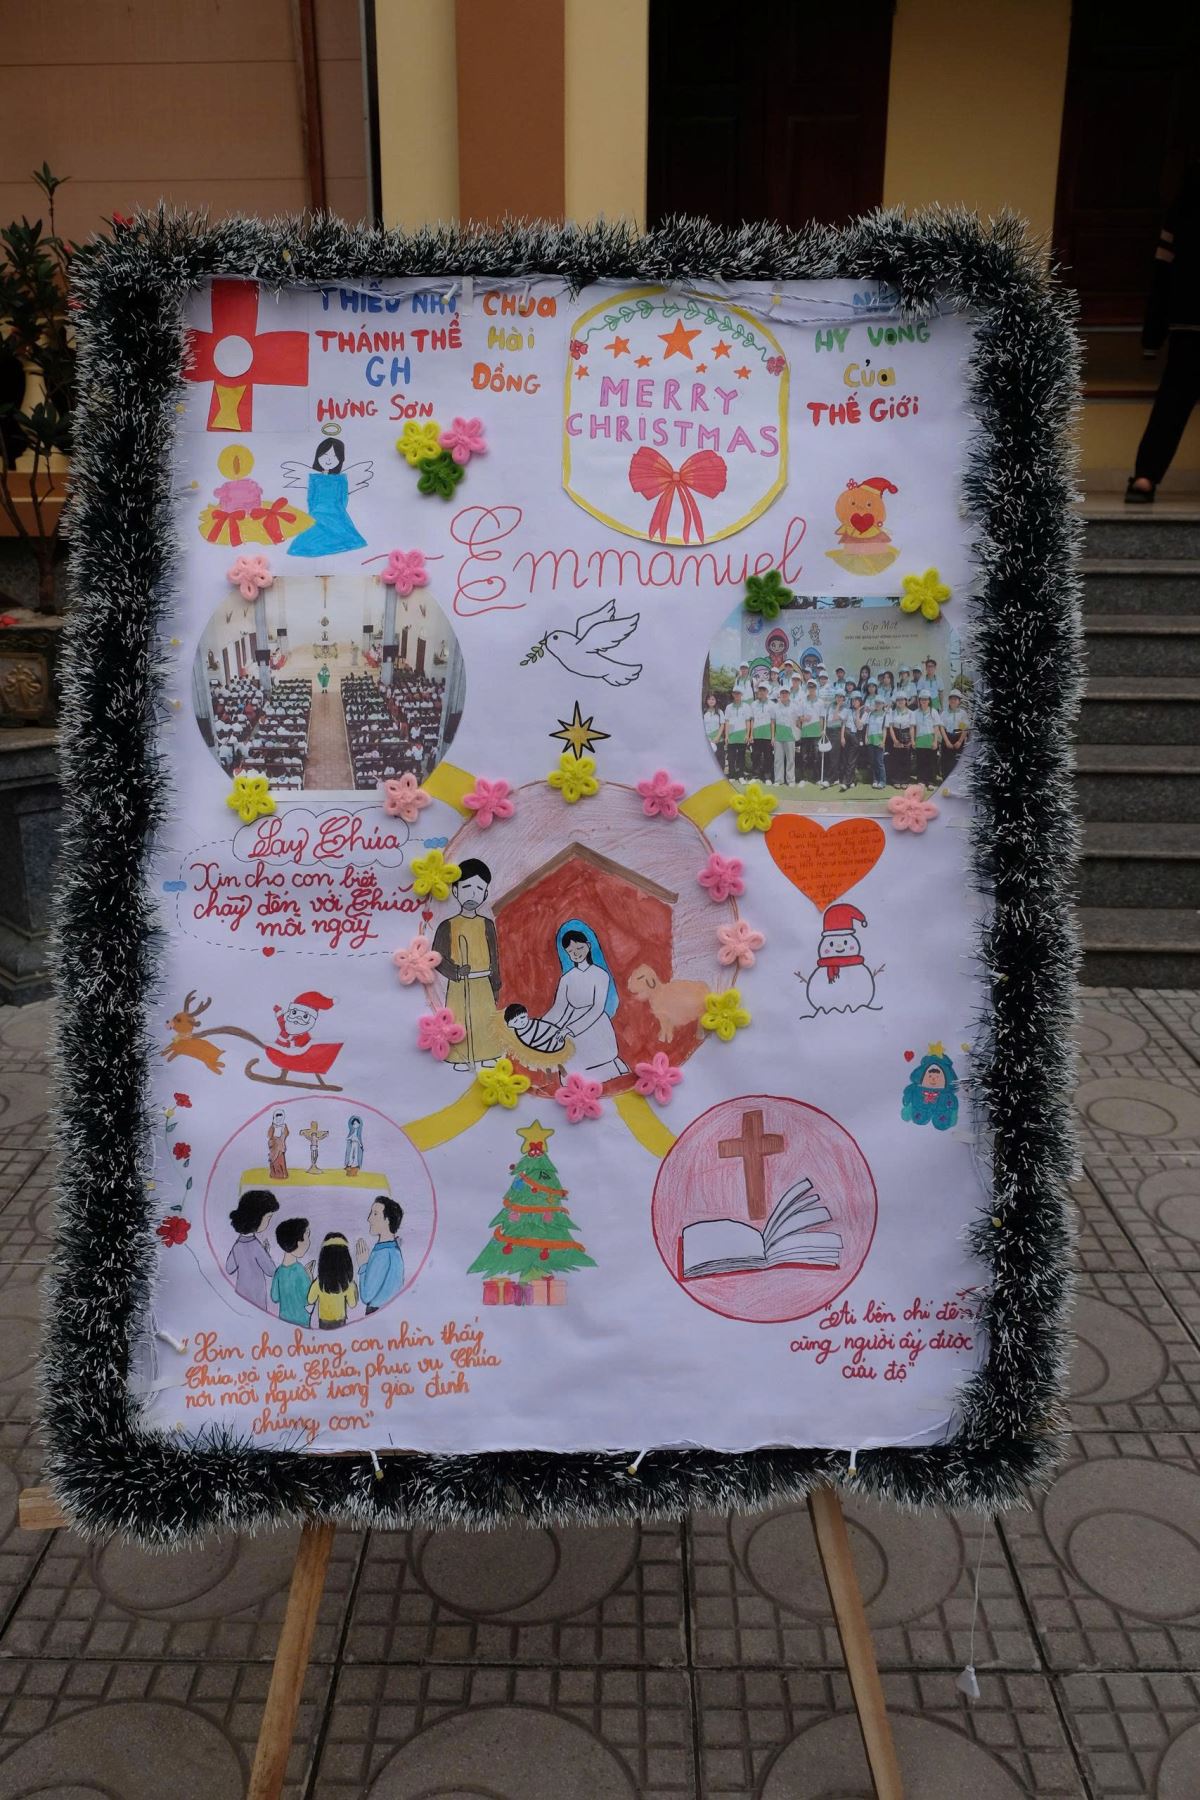 THIẾU NHI
THÁNH THỂ
GH
HƯNG SƠN
CHÚA
Hài
ĐỒNG
MERRY
CHRISTMAS
HY VỌNG
Của
THẾ Giới
Emmanuel
Gặp Mặt
Chủ Đề
Lạy Chúa
Xin cho con biết
chạy đến với Chúa
mỗi ngày
"Xin cho chúng con nhìn thấy
Chúa, và yêu Chúa, phục vụ Chúa
nơi mỗi người trong gia đình
chúng con"
"Ai bền chí đến
cùng người ấy được
cứu độ"